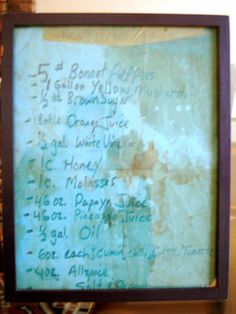 - 5 # Bonnet Peppers
- 1 Gallon Yellow Mustard
- 1/2 # Brown Sugar
- 1 Bottle Orange Juice
- 1/2 gal. White Vine
- 1 C. Honey
- 1 C. Molasses
- 46 oz. Papaya Juice
- 46 oz. Pineapple Juice
- 1/2 gal. Oil
- 6 oz each: Cumin, chili, Curry,
- 4 oz. Allspice
Salt